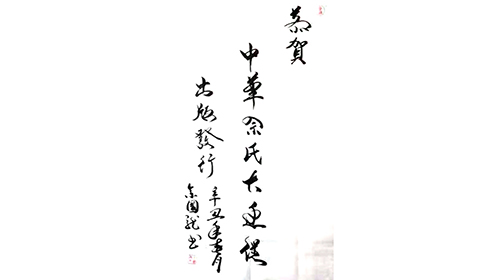 恭賀
中華余氏大通譜
出版發行
辛丑年春月
余國龍書